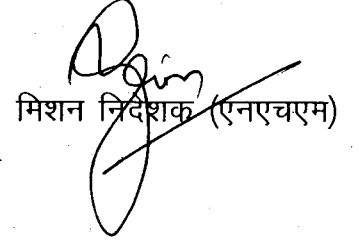 मिशन निदेशक (एनएचएम)